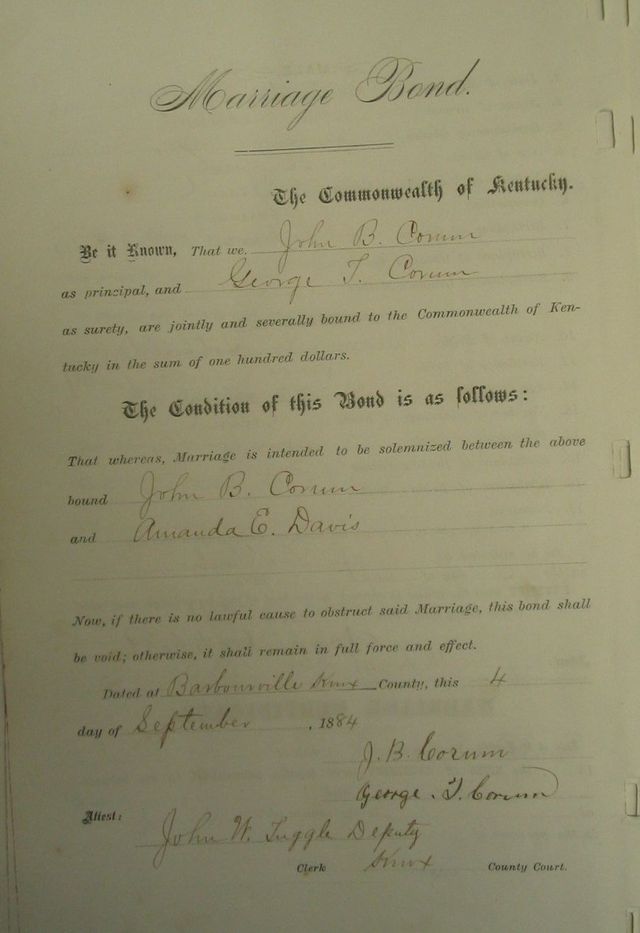 Marriage Bond.
The Commonwealth of Kentucky.
Be it Known, That we, John B. Corum
as principal, and George T. Corum
as surety, are jointly and severally bound to the Commonwealth of Ken-
tucky in the sum of one hundred dollars.
The Condition of this Bond is as follows:
That whereas, Marriage is intended to be solemnized between the above
bound John B. Corum
and Amanda E. Davis
Now, if there is no lawful cause to obstruct said Marriage, this bond shall
be void; otherwise, it shall remain in full force and effect.
Dated at Barbourville Knox County, this 4
day of September, 1884
J. B. Corum
George T. Corum
Attest:
John W. Tuggle Deputy
Clerk Knox County Court.